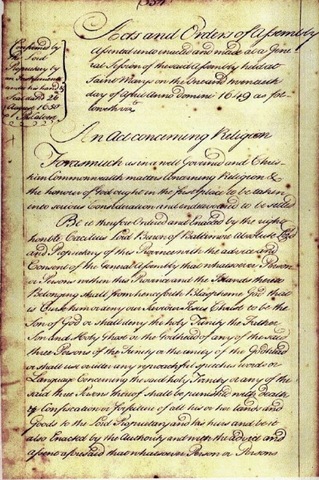 Confirmed by
the Lord
Proprietary by
an Instrument
under his hand &
Seal and 26
August 1650
Acts and Orders of Assembly
Assented unto enacted and made at a Gene
ral Session of the said Assembly held at
Saint Marys on the one and twentieth
day of April Anno Domini 1649 as fol
loweth viz
An Act concerning Religion
Forasmuch as in a well Governd and Chris
tian Commonwealth matters Concerning Religion &
the honour of God ought in the first place to be taken
into serious Consideration and endeavoured to be settled
Be it therefore Ordered and Enacted by the right
honble Caecilius Lord Baron of Baltemore Absolute Lord
and Proprietary of this Province with the advice and
Consent of the General Assembly that whatsoever Person
or Persons within this Province and the Islands thereto
Belonging shall from henceforth Blaspheme God that
is Curse him or deny our Saviour Jesus Christ to be the
Son of God or shall deny the holy Trinity the Father
Son and Holy Ghost or the Godhead of any of the said
three Persons of the Trinity or the unity of the Godhead
or shall use or utter any reproachful speeches words or
Language Concerning the said holy Trinity or any of the
said three Persons thereof shall be punished with Death
& Confiscation or forfeiture of all his or her lands and
Goods to the Lord Proprietary and his heirs and be it
also Enacted by the Authority and with the advice and
assent aforesaid that whatsoever Person or Persons